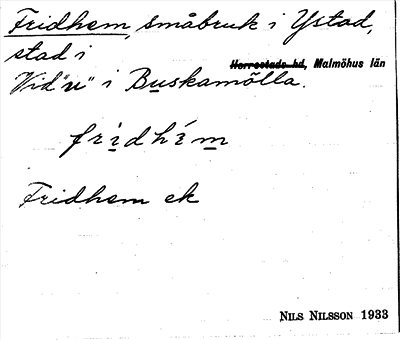 Fridhem, småbruk i Ystad,
stad i
Herrestads hd, Malmöhus län
Vid "u" i Buskamölla.
fridhém
Fridhem ek
NILS NILSSON 1933